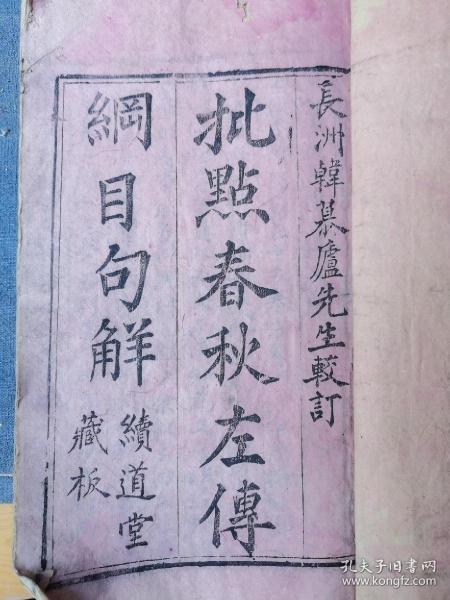 長洲韓慕廬先生較訂
批點春秋左傳
綱目句解
續道堂
藏板
孔夫子旧书网
www.kongfz.com